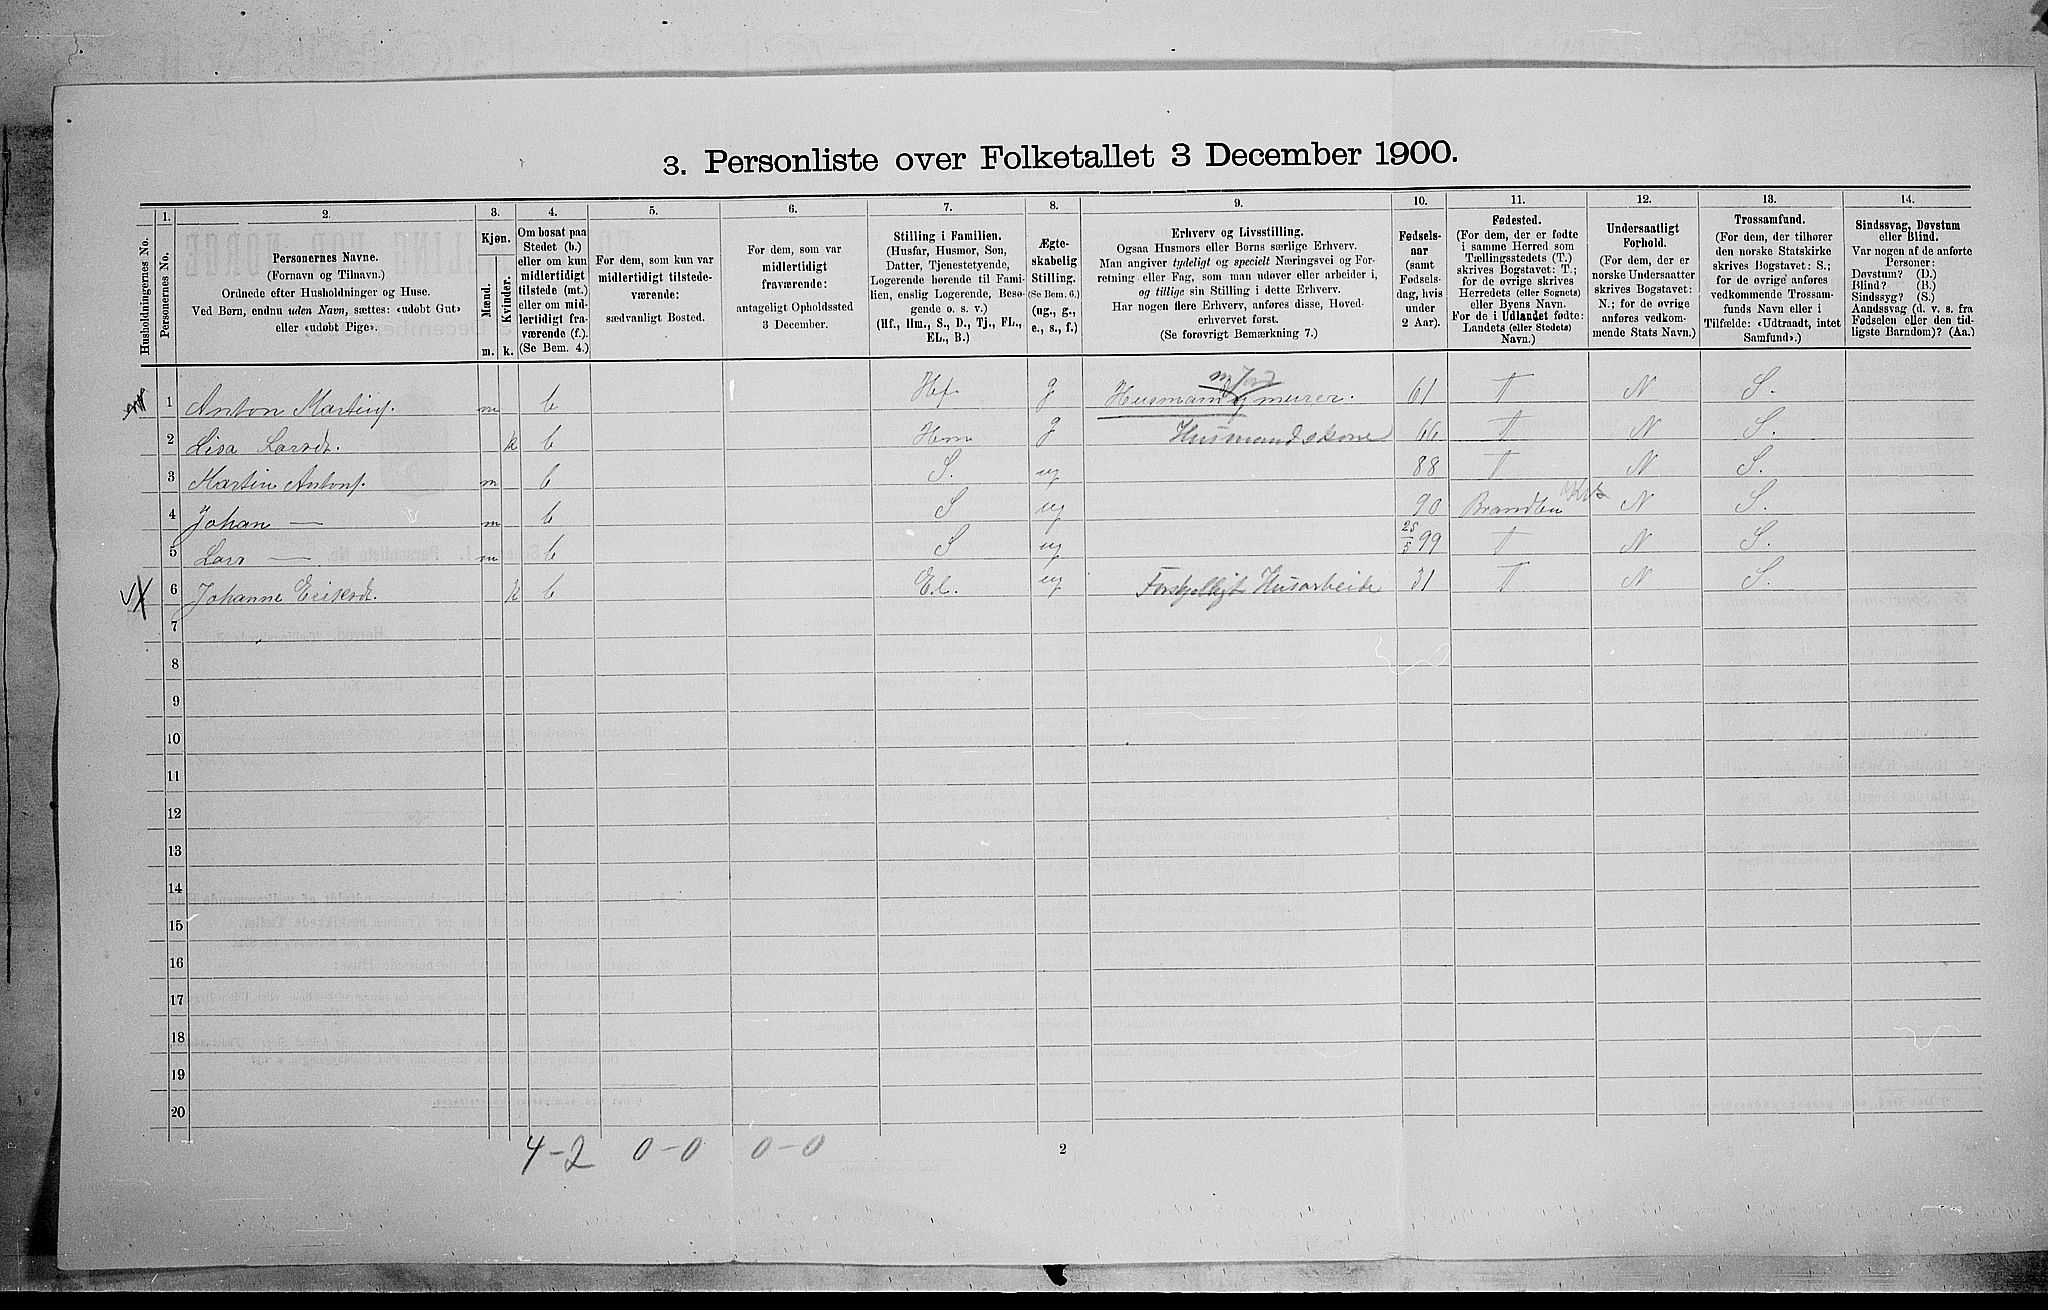 3. Personliste over Folketallet 3 December 1900.
Husholdningernes No.
1.
Personernes No.
2.
Personernes Navne.
(Fornavn og Tilnavn.)
Ordnede efter Husholdninger og Huse.
Ved Børn, endnu uden Navn, sættes: «udøbt Gut»
eller «udøbt Pige».
3.
Kjøn.
Mænd.
Kvinder.
m. k.
4.
Om bosat paa
Stedet (b.)
eller om kun
midlertidigt
tilstede (mt.)
eller om mid-
lertidigt fra-
værende (f.).
(Se Bem. 4.)
5.
For dem, som kun var
midlertidigt tilstede-
værende:
sædvanligt Bosted.
6.
For dem, som var
midlertidigt
fraværende:
antageligt Opholdssted
3 December.
7.
Stilling i Familien.
(Husfar, Husmor, Søn,
Datter, Tjenestetyende,
Logerende hørende til Fami-
lien, enslig Logerende, Besø-
gende o. s. v.)
(Hf., Hm., S., D., Tj., FL.,
EL., B.)
8.
Ægte-
skabelig
Stilling.
(Se Bem. 6.)
(ug., g.,
e., s., f.)
9.
Erhverv og Livsstilling.
Ogsaa Husmors eller Børns særlige Erhverv.
Man angiver tydeligt og specielt Næringsvei og For-
retning eller Fag, som man udøver eller arbeider i,
og tillige sin Stilling i dette Erhverv.
Har nogen flere Erhverv, anføres disse, Hoved-
erhvervet først.
(Se forøvrigt Bemærkning 7.)
10.
Fødsels-
aar
(samt
Fødsels-
dag, hvis
under
2 Aar).
11.
Fødested.
(For dem, der er fødte
i samme Herred som
Tællingsstedets (T.)
skrives Bogstavet: T.;
for de øvrige skrives
Herredets (eller Sognets)
eller Byens Navn.
For de i Udlandet fødte:
Landets (eller Stedets)
Navn.)
12.
Undersaatligt
Forhold.
(For dem, der er
norske Undersaatter
skrives Bogstavet:
N.; for de øvrige
anføres vedkom-
mende Stats Navn.)
13.
Trossamfund.
(For dem, der tilhører
den norske Statskirke
skrives Bogstavet: S.;
for de øvrige anføres
vedkommende Trossam-
funds Navn eller i
Tilfælde: «Udtraadt, intet
Samfund».)
14.
Sindssvag, Døvstum
eller Blind.
Var nogen af de anførte
Personer:
Døvstum? (D.)
Blind? (B.)
Sindssyg? (S.)
Aandssvag (d. v. s. fra
Fødselen eller den tid-
ligste Barndom)? (Aa.)
m Jord
1 Anton Martins. m b Hf g Husmand murer. 61 T N S.
2 Lisa Larsdt. k b Hm g Husmandskone 66 T N S.
3 Martin Antons. m b S. ug 88 T N S.
4 Johan — m b S ug 90 Brandbu N S.
5 Lars — m b S ug 25/5 99 T N S.
6 Johanne Eriksdt. k b El. ug Forskjelligt Husarbeide 31 T N S.
7
8
9
10
11
12
13
14
15
16
17
18
19
20
4-2 0-0 0-0
2